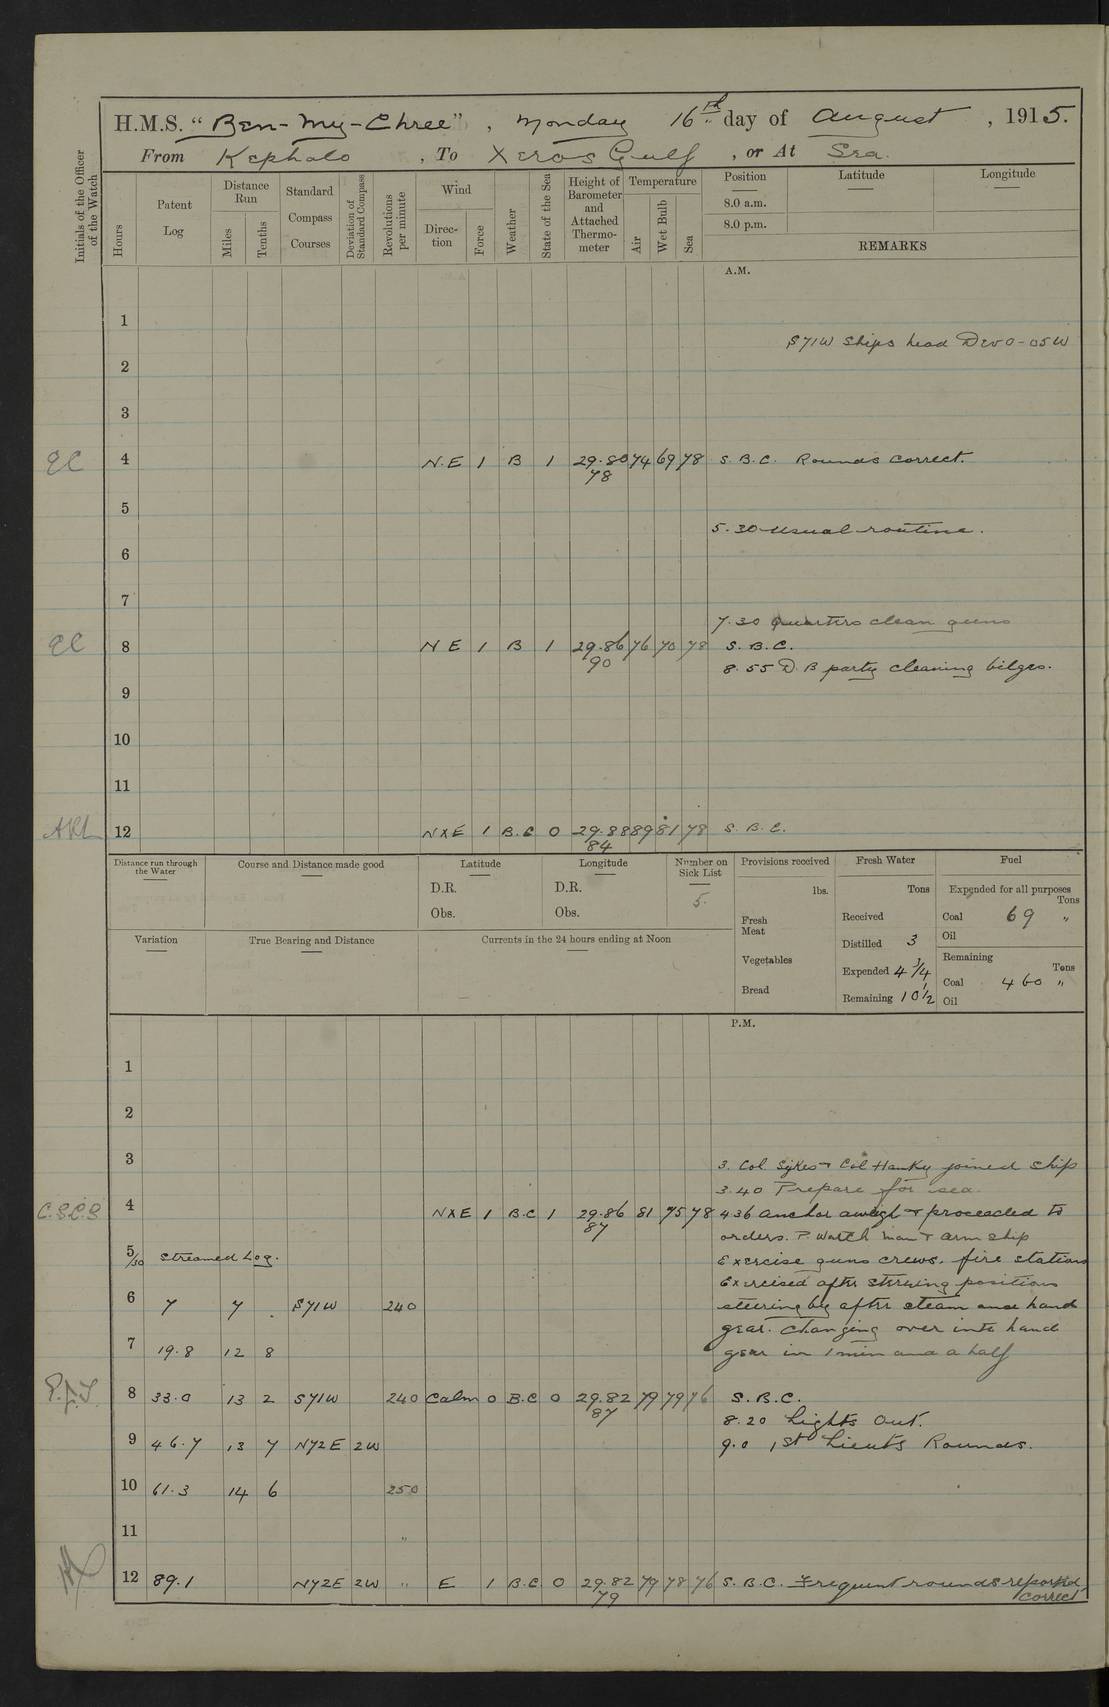 H.M.S. “Ben-My-Chree”, Monday 16th day of August, 1915.
From Kephalo, To Xeros Gulf, or At Sea.
Initials of the Officer of the Watch
Hours
Patent Log
Distance Run
Miles
Tenths
Standard Compass Courses
Deviation of Standard Compass
Revolutions per minute
Wind
Direction
Force
Weather
State of the Sea
Height of Barometer and Attached Thermometer
Temperature
Air
Wet Bulb
Sea
Position
8.0 a.m.
8.0 p.m.
Latitude
Longitude
REMARKS
A.M.
1
S71W Ships head Dev 0-05W
2
3
4 N.E 1 B 1 29.80 74 69 78 S.B.C. Rounds correct.
78
5
5.30 usual routine.
6
7
7.30 Quarters clean guns
8 N E 1 B 1 29.86 76 70 78 S.B.C.
90
8.55 D.B party cleaning bilges.
9
10
11
12 NXE 1 B.C 0 29.88 89 81 78 S.B.C.
84
Distance run through the Water
Course and Distance made good
Latitude
D.R.
Obs.
Longitude
D.R.
Obs.
Number on Sick List
5.
Provisions received
lbs.
Fresh Meat
Vegetables
Bread
Fresh Water
Tons
Received
Distilled 3
Expended 4 3/4
Remaining 10 1/2
Fuel
Expended for all purposes
Tons
Coal 69 „
Oil
Remaining
Tons
Coal 460 „
Oil
Variation
True Bearing and Distance
Currents in the 24 hours ending at Noon
P.M.
1
2
3
3. Col Sykes + Col Hanky joined ship
3.40 Prepare for sea.
C.S.C.S. 4 NXE 1 B.C 1 29.86 81 75 78 4 36 anchor aweigh + proceeded to
87
orders. P. Watch man + arm ship
5/30 Streamed Log.
Exercise guns crews. fire stations
Exercised after steering positions
6 7 7 . S71W 240 steering by after steam and hand
gear. Changing over into hand
7 19.8 12 8 gear in 1 min and a half
8 33.0 13 2 S71W 240 Calm 0 B.C 0 29.82 79 79 76 S.B.C.
87
8.20 Lights Out.
9 46.7 13 7 N72E 2W 9.0 1st Lieuts Rounds.
10 61.3 14 6 250
11 „
12 89.1 N72E 2W „ E 1 B.C. 0 29.82 79 78 76 S.B.C. Frequent rounds reported
79
correct